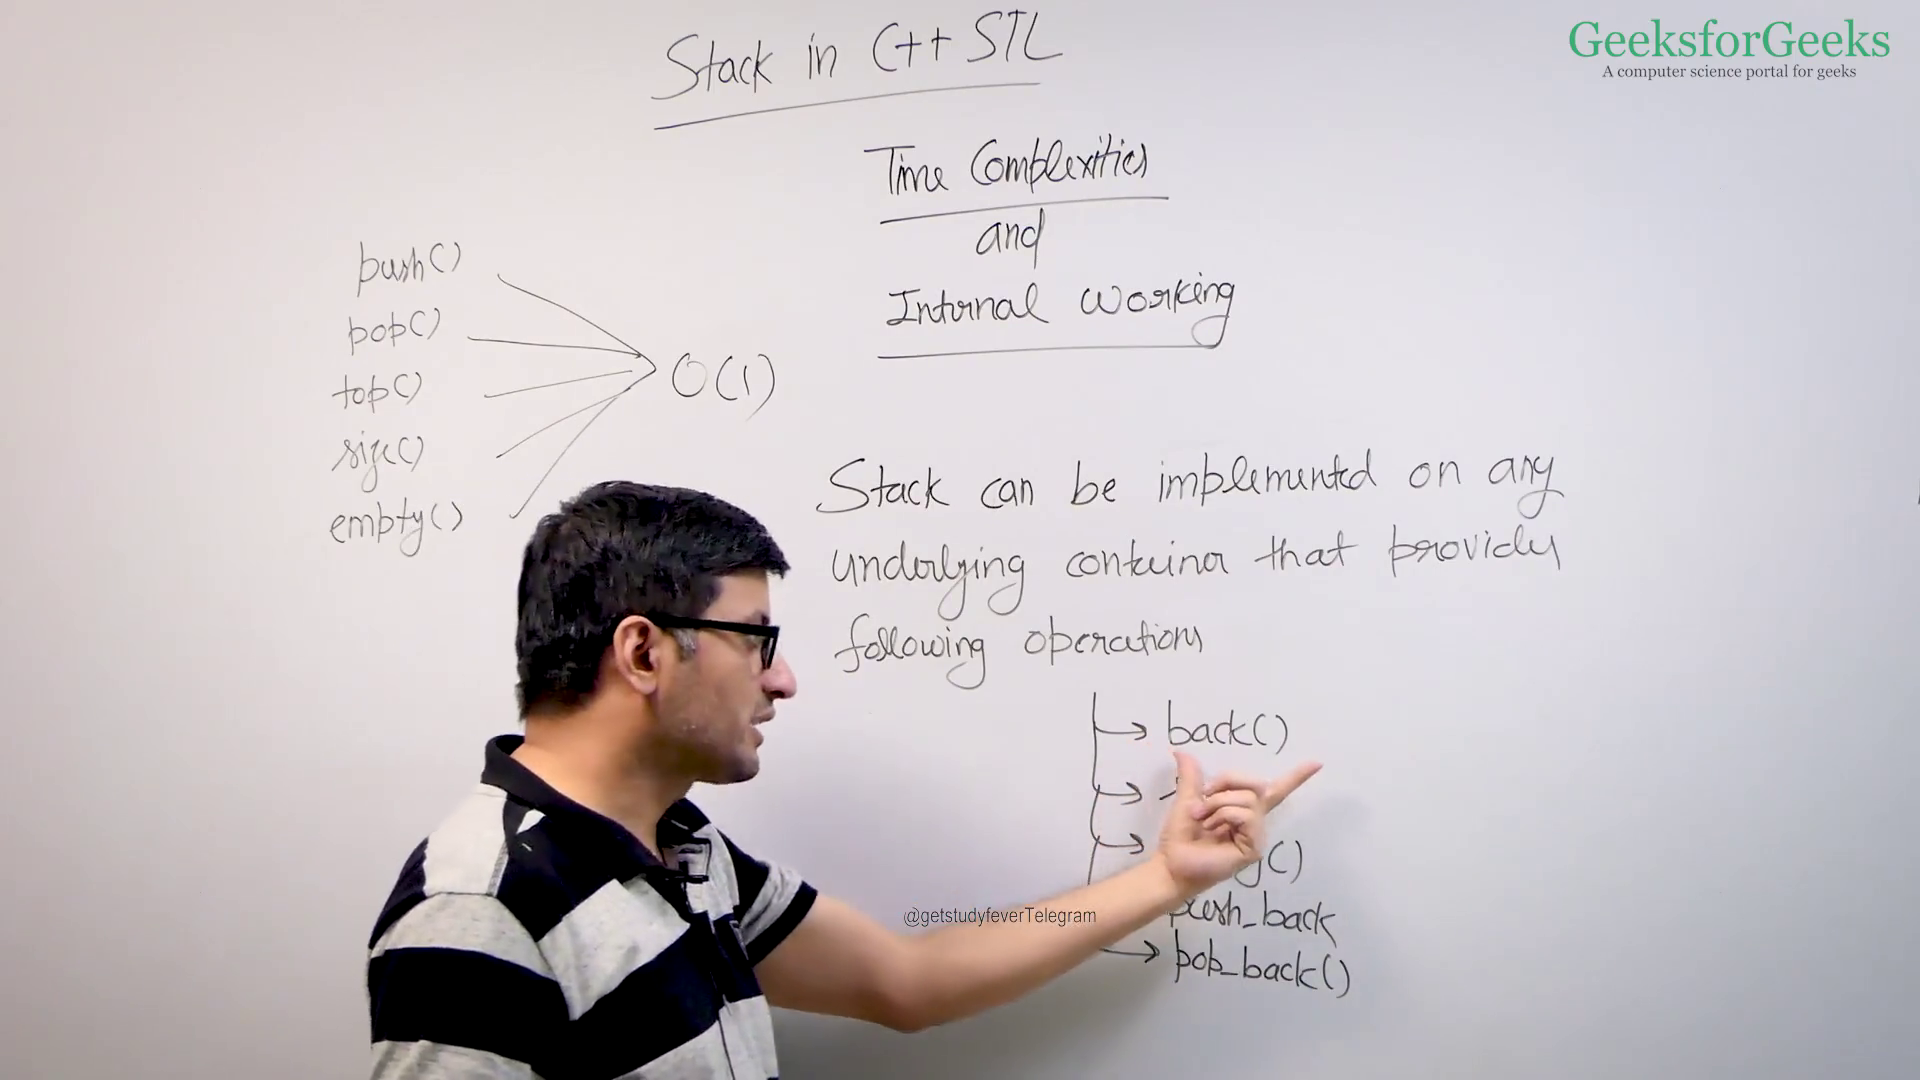 Stack in C++ STL
GeeksforGeeks
A computer science portal for geeks
Time Complexities
and
Internal Working
push()
pop()
top()
size()
empty()
O(1)
Stack can be implemented on any
underlying container that provides
following operations
back()
push_back
pop_back()
@getstudyfeverTelegram